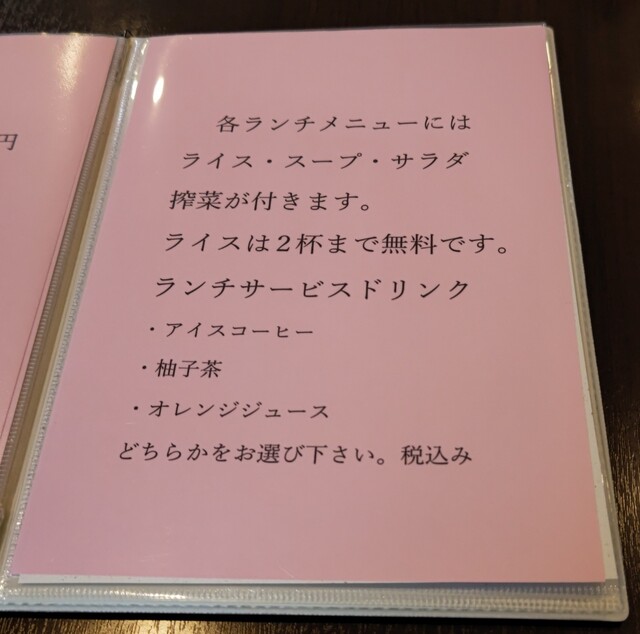 円
各ランチメニューには
ライス・スープ・サラダ
搾菜が付きます。
ライスは2杯まで無料です。
ランチサービスドリンク
・アイスコーヒー
・柚子茶
・オレンジジュース
どちらかをお選び下さい。税込み